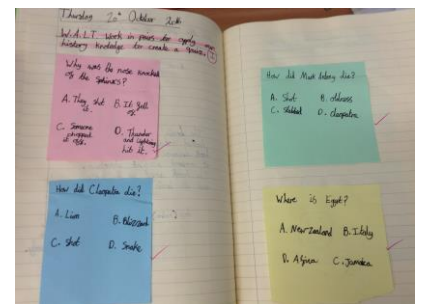 Thursday 20th October
W.A.L.T work in pairs to apply our
history knowledge to create a
Why was the nose
of the
A. They shot B. It fell
it. off.
C. Someone D. Thunder
chopped and lightning
it off. hit it.
How did Cleopatra die?
A. Lion B. Blizzard
C. Shot D. Snake
How did Mark die?
A. Shot B. oldness
C. Stabbed D. cleopatra
Where is Egypt?
A. New Zealand B. Italy
D. C. Jamaica